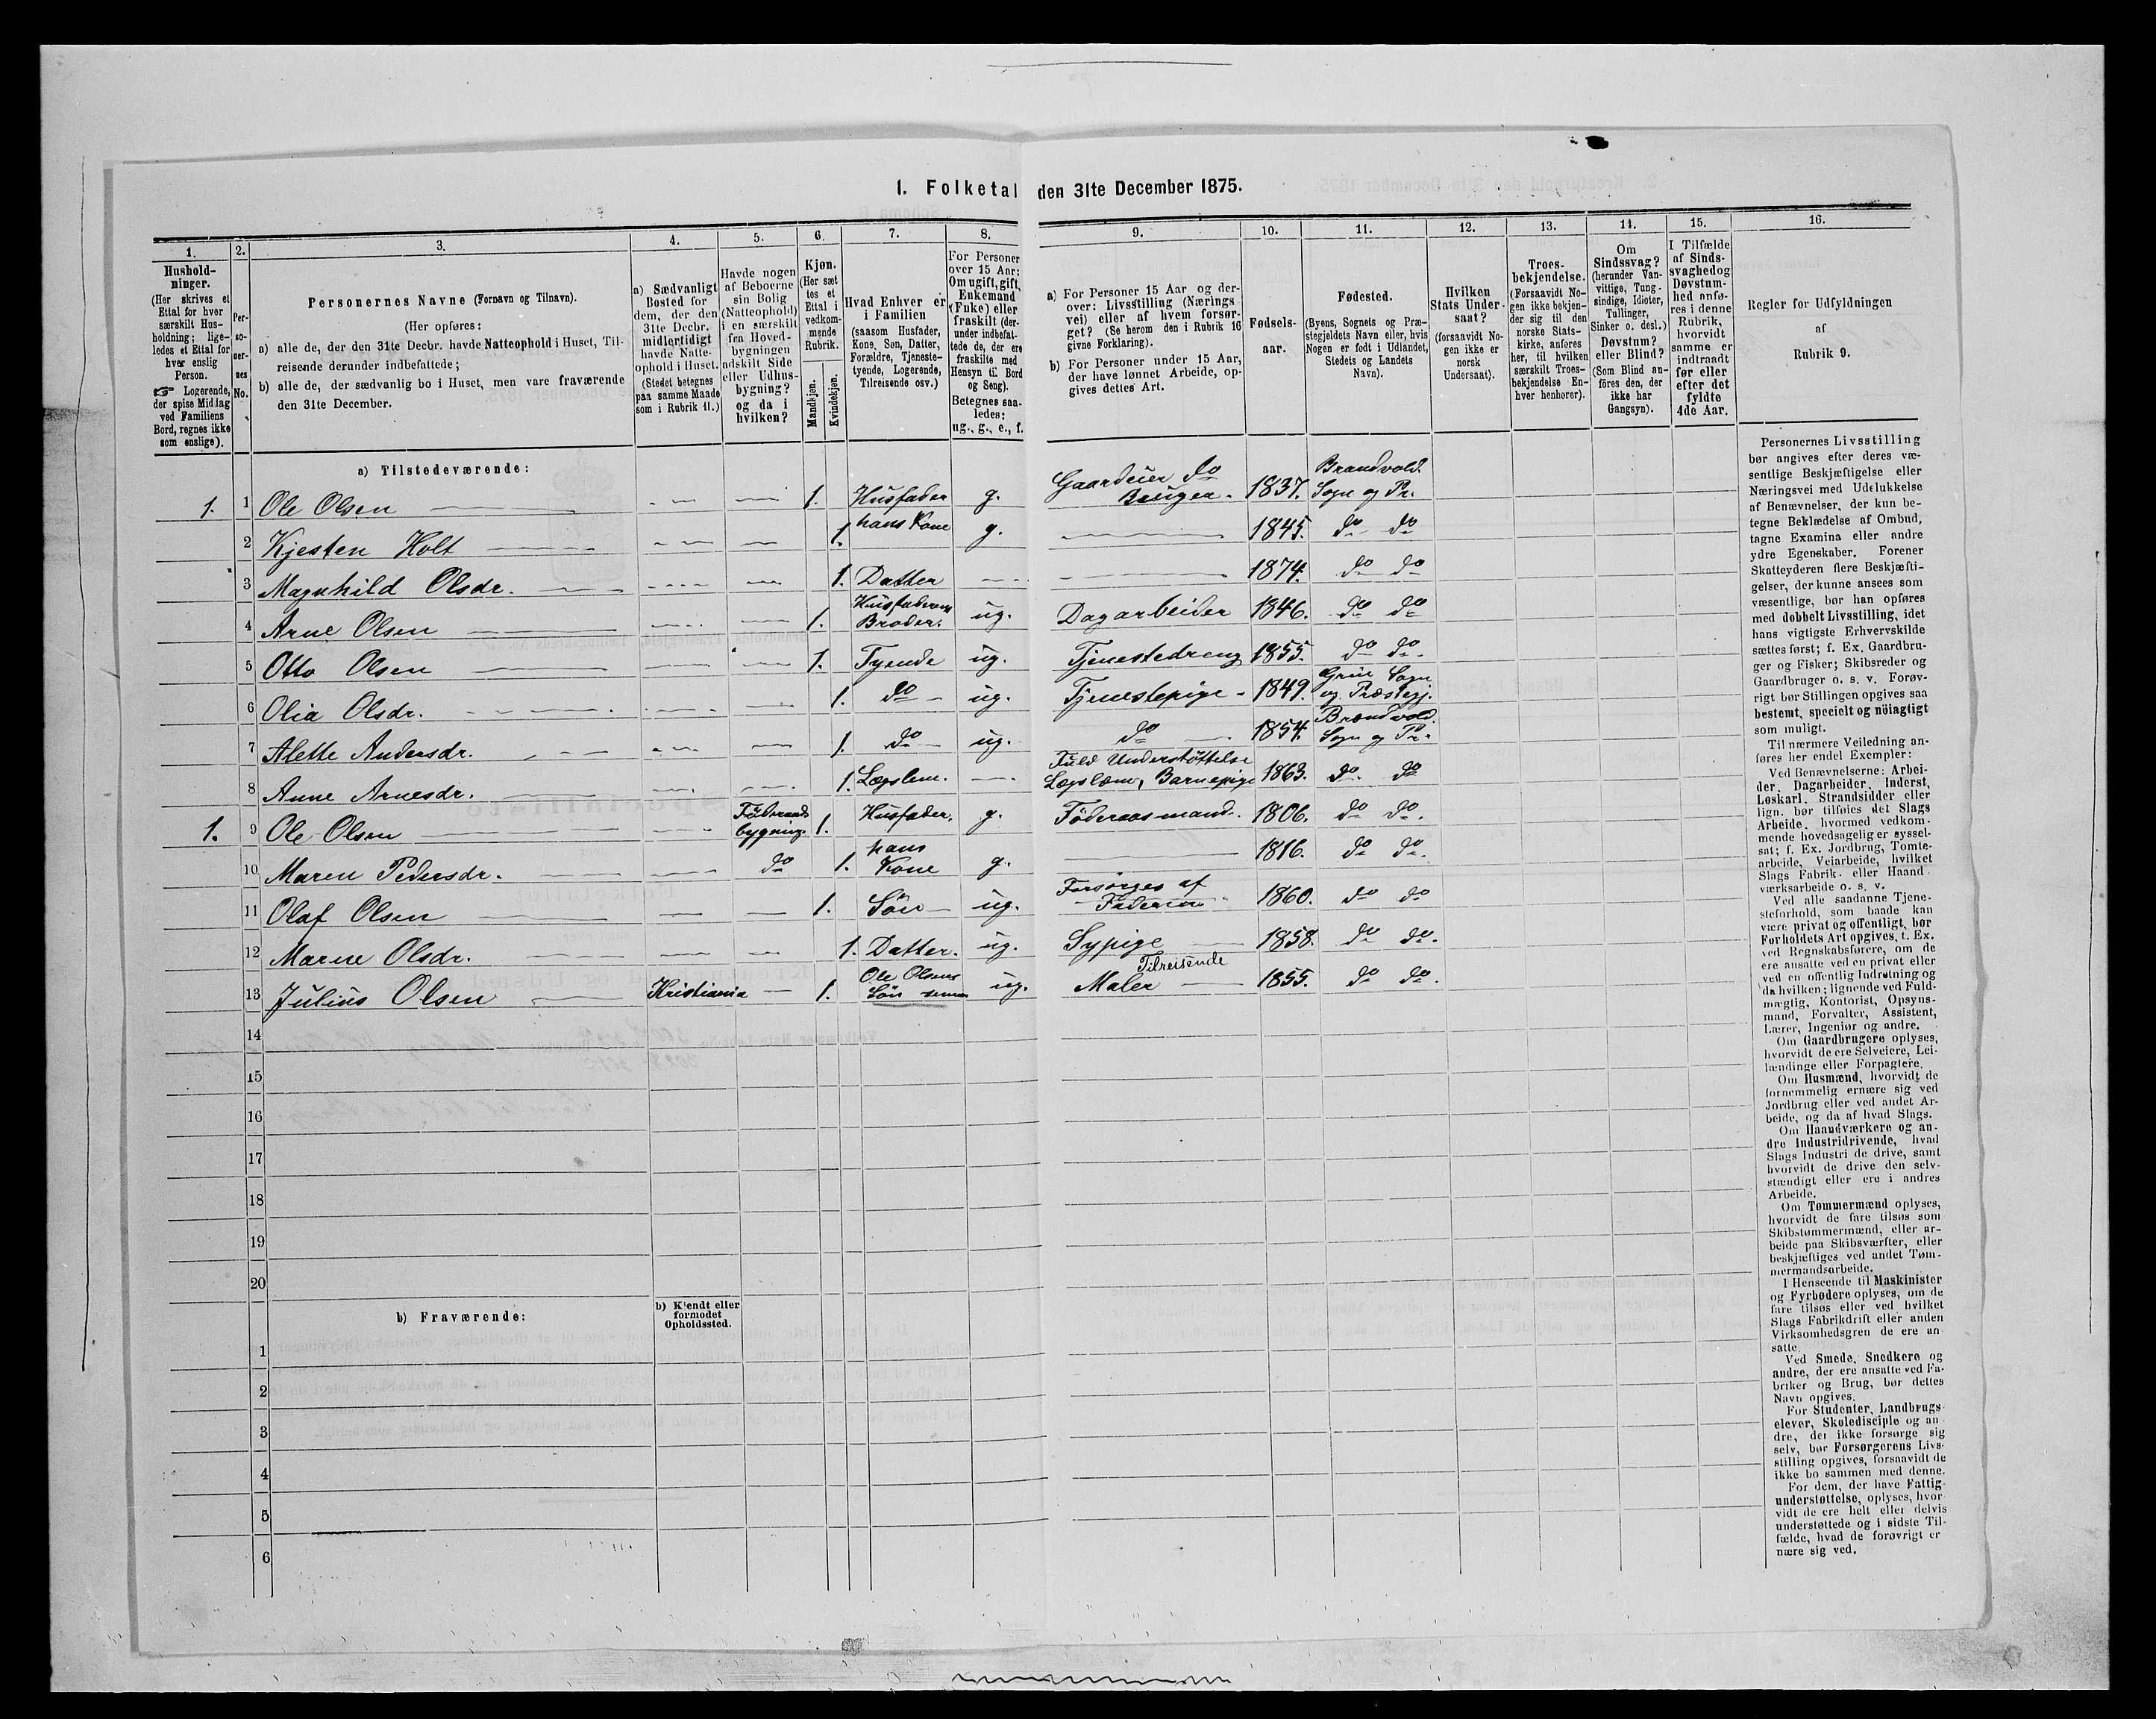 1. Folketal den 31te December 1875.
1. 2. 3. 4. 5. 6. 7. 8. 9. 10. 11. 12. 13. 14. 15. 16.
Hushold-
ninger.
(Her skrives et
Ettal for hver
særskilt Hus-
holdning; lige-
ledes et Ettal for
hver enslig
Person.
☞ Logerende,
der spise Middag
ved Familiens
Bord, regnes ikke
som enslige).
Per-
so-
ner-
nes
No.
Personernes Navne (Fornavn og Tilnavn).
(Her opføres:
a) alle de, der den 31te Decbr. havde Natteophold i Huset, Til-
reisende derunder indbefattede;
b) alle de, der sædvanlig bo i Huset, men vare fraværende
den 31te December.
a) Sædvanligt
Bosted for
dem, der den
31te Decbr.
midlertidigt
havde Natte-
ophold i Huset.
(Stedet betegnes
paa samme Maade
som i Rubrik 11.)
Havde nogen
af Beboerne
sin Bolig
(Natteophold)
i en særskilt
fra Hoved-
bygningen
adskilt Side
eller Udhus-
bygning?
og da i
hvilken?
Kjøn.
(Her sæt
tes et
Ettal i
vedkom-
mende
Rubrik.
Mandkjøn.
Kvindekjøn.
Hvad Enhver er
i Familien
(saasom Husfader,
Kone, Søn, Datter,
Forældre, Tjeneste-
tyende, Logerende,
Tilreisende osv.)
For Personer
over 15 Aar:
Om ugift, gift,
Enkemand
(Enke) eller
fraskilt (der-
under indbefat-
tede de, der ere
fraskilte med
Hensyn til Bord
og Seng).
Betegnes saa-
ledes:
ug., g., e., f.
a) For Personer 15 Aar og der-
over: Livsstilling (Nærings
vei) eller af hvem forsør-
get? (Se herom den i Rubrik 16
givne Forklaring).
b) For Personer under 15 Aar,
der have lønnet Arbeide, op-
gives dettes Art.
Fødsels-
aar.
Fødested.
(Byens, Sognets og Præ-
stegjeldets Navn eller, hvis
Nogen er født i Udlandet,
Stedets og Landets
Navn).
Hvilken
Stats Under-
saat?
(forsaavidt No-
gen ikke er
norsk
Undersaat).
Troes-
bekjendelse.
(Forsaavidt No-
gen ikke bekjen-
der sig til den
norske Stats-
kirke, anføres
her, til hvilken
særskilt Troes-
bekjendelse En-
hver henhører).
Om
Sindssvag?
(herunder Van-
vittige, Tung-
sindige, Idioter,
Tullinger,
Sinker o. desl.)
Døvstum?
eller Blind?
(Som Blind an-
føres den, der
ikke har
Gangsyn).
I Tilfælde
af Sinds-
svaghedog
Døvstum-
hed anfø-
res i denne
Rubrik,
hvorvidt
samme er
indtraadt
før eller
efter det
fyldte
4de Aar.
Regler for Udfyldningen
af
Rubrik 9.
a) Tilstedeværende:
1. 1 Ole Olsen 1. Husfader g. Gaardeier do Bruger. 1837. Brandvold. Sogn og Pr.
2 Kjesten Holt 1. hans Kone g. 1845. do do
3 Magnhild Olsdr. 1. Datter 1874. do do
4 Arne Olsen 1. Husfaderens Broder. ug. Dagarbeider 1846. do do
5 Otto Olsen 1. Tyende ug. Tjenestedreng 1855. do do.
6 Olia Olsdr. 1. do ug. Tjenestepige 1849. Grue Sogn og Præstegj.
7 Alette Andersdr. 1. do ug. do 1854. Brandvold. Sogn og Pr.
8 Anne Arnesdr. 1. Lægslem. Fuld Understøttelse Lægslem, Barnepige 1863. do. do
1. 9 Ole Olsen Föderaads bygning. 1. Husfader. g. Föderaasmand. 1806. do do.
10 Maren Pedersdr. do 1. hans Kone g. 1816. do do.
11 Olaf Olsen 1. Sön ug. Forsørges af Faderen 1860. do do
12 Marne Olsdr. 1. Datter. ug. Sypige 1858. do do.
13 Julius Olsen Kristiania 1. Ole Olsens Sön ug. Tilreisende Maler 1855. do do.
14
15
16
17
18
19
20
b) Fraværende:
b) Kjendt eller
formodet
Opholdssted.
1
2
3
4
5
6
Personernes Livsstilling
bør angives efter deres væ-
sentlige Beskjæftigelse eller
Næringsvei med Udelukkelse
af Benævnelser, der kun be-
tegne Beklædelse af Ombud,
tagne Examina eller andre
ydre Egenskaber. Forener
Skatteyderen flere Beskjæfti-
gelser, der kunne ansees som
væsentlige, bør han opføres
med dobbelt Livsstilling, idet
hans vigtigste Erhvervskilde
sættes først; f. Ex. Gaardbru-
ger og Fisker; Skibsreder og
Gaardbruger o. s. v. Forøv-
rigt bør Stillingen opgives saa
bestemt, specielt og nöiagtigt
som muligt.
Til nærmere Veiledning an-
føres her endel Exempler:
Ved Benævnelserne: Arbei-
der, Dagarbeider, Inderst,
Løskarl, Strandsidder eller
lign. bør tilføies det Slags
Arbeide, hvormed vedkom-
mende hovedsagelig er syssel-
sat; f. Ex. Jordbrug, Tomte-
arbeide, Veiarbeide, hvilket
Slags Fabrik- eller Haand-
værksarbeide o. s. v.
Ved alle saadanne Tjene-
steforhold, som baade kan
være privat og offentligt, bør
Forholdets Art opgives, t. Ex.
ved Regnskabsførere, om de
ere ansatte ved en privat eller
ved en offentlig Indretning og
da hvilken; lignende ved Fuld-
mægtig, Kontorist, Opsyns-
mand, Forvalter, Assistent,
Lærer, Ingeniør og andre.
Om Gaardbrugere oplyses,
hvorvidt de ere Selveiere, Lei-
lændinge eller Forpagtere.
Om Husmænd, hvorvidt de
fornemmelig ernære sig ved
Jordbrug eller ved andet Ar-
beide, og da af hvad Slags.
Om Haandværkere og an-
dre Industridrivende, hvad
Slags Industri de drive, samt
hvorvidt de drive den selv-
stændigt eller ere i andres
Arbeide.
Om Tømmermænd oplyses,
hvorvidt de fare tilsøs som
Skibstømmermænd, eller ar-
beide paa Skibsværfter, eller
beskjæftiges ved andet Tøm-
mermandsarbeide.
I Henseende til Maskinister
og Fyrbødere oplyses, om de
fare tilsøs eller ved hvilket
Slags Fabrikdrift eller anden
Virksomhedsgren de ere an
satte.
Ved Smede, Snedkere og
andre, der ere ansatte ved Fa-
briker og Brug, bør dettes
Navn opgives.
For Studenter, Landbrugs
elever, Skoledisciple og an
dre, der ikke forsørge sig
selv, bør Forsørgerens Livs-
stilling opgives, forsaavidt de
ikke bo sammen med denne.
For dem, der have Fattig-
understøttelse, oplyses, hvor
vidt de ere helt eller delvis
understøttede og i sidste Til-
fælde, hvad de forøvrigt er
nære sig ved.